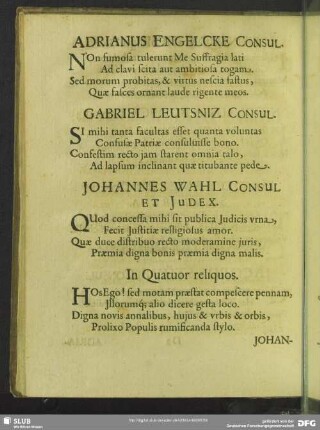 ADRIANUS ENGELCKE CONSUL.
NOn fumosa tulerunt Me Suffragia lati
Ad clavi scita aut ambitiosa togam.
Sed morum probitas, & virtus nescia fastus,
Quæ fasces ornant laude rigente meos.
GABRIEL LEUTSNIZ CONSUL.
SI mihi tanta facultas esset quanta voluntas
Confusæ Patriæ consuluisse bono.
Confestim recto jam starent omnia talo,
Ad lapsum inclinant quæ titubante pede.
JOHANNES WAHL CONSUL
ET JUDEX.
QUod concessa mihi sit publica Judicis vrna,
Fecit Justitiæ relligiosus amor.
Quæ duce distribuo recto moderamine juris,
Præmia digna bonis præmia digna malis.
In Quatuor reliquos.
HOsEgo! sed motam præstat compescere pennam,
Istorumq; alio dicere gesta loco.
Digna novis annalibus, hujus & vrbis & orbis,
Prolixo Populis rumificanda stylo.
JOHAN-
SLUB
Wir führen Wissen.
gefördert von der
Deutschen Forschungsgemeinschaft
DFG